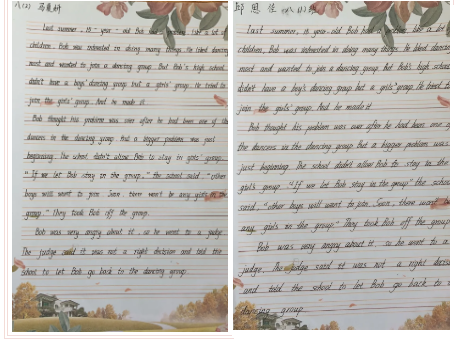 八(2)
Last summer, 15-year-old Bob had dancing like a lot of
children. Bob was interested in doing many things. He liked dancing
most and wanted to join a dancing group. But Bob's high school
didn't have a boys' dancing group but a girls' group. He tried to
join the girls' group. And he made it.
Bob thought his problem was over after he had been one of the
dancers in the dancing group. But a bigger problem was just
beginning. The school didn't allow Bob to stay in girls' group.
"If we let Bob stay in the group," the school said, "other
boys will want to join. Soon, there won't be any girls in the
group." They took Bob off the group.
Bob was very angry about it, so he went to a judge.
The judge said it was not a right decision and told the
school to let Bob go back to the dancing group.
邱恩佳 八(1)班
Last summer, 15-year-old Bob like a lot of
children, Bob was interested in doing many things. He liked dancing
most and wanted to join a dancing group but Bob's high school
didn't have a boy's dancing group but a girls' group. He tried to
join the girls' group. And he made it
Bob thought his problem was over after he had been one of
the dancers in the dancing group. But a bigger problem was
just beginning. The school didn't allow Bob to stay in the
girls' group. "If we let Bob stay in the group" the school
said, "other boys will want to join. Soon, there won't be
any girls in the group." They took Bob off the group
Bob was very angry about it, so he went to a
judge. The judge said it was not a right decis
and told the school to let Bob go back to
dancing group